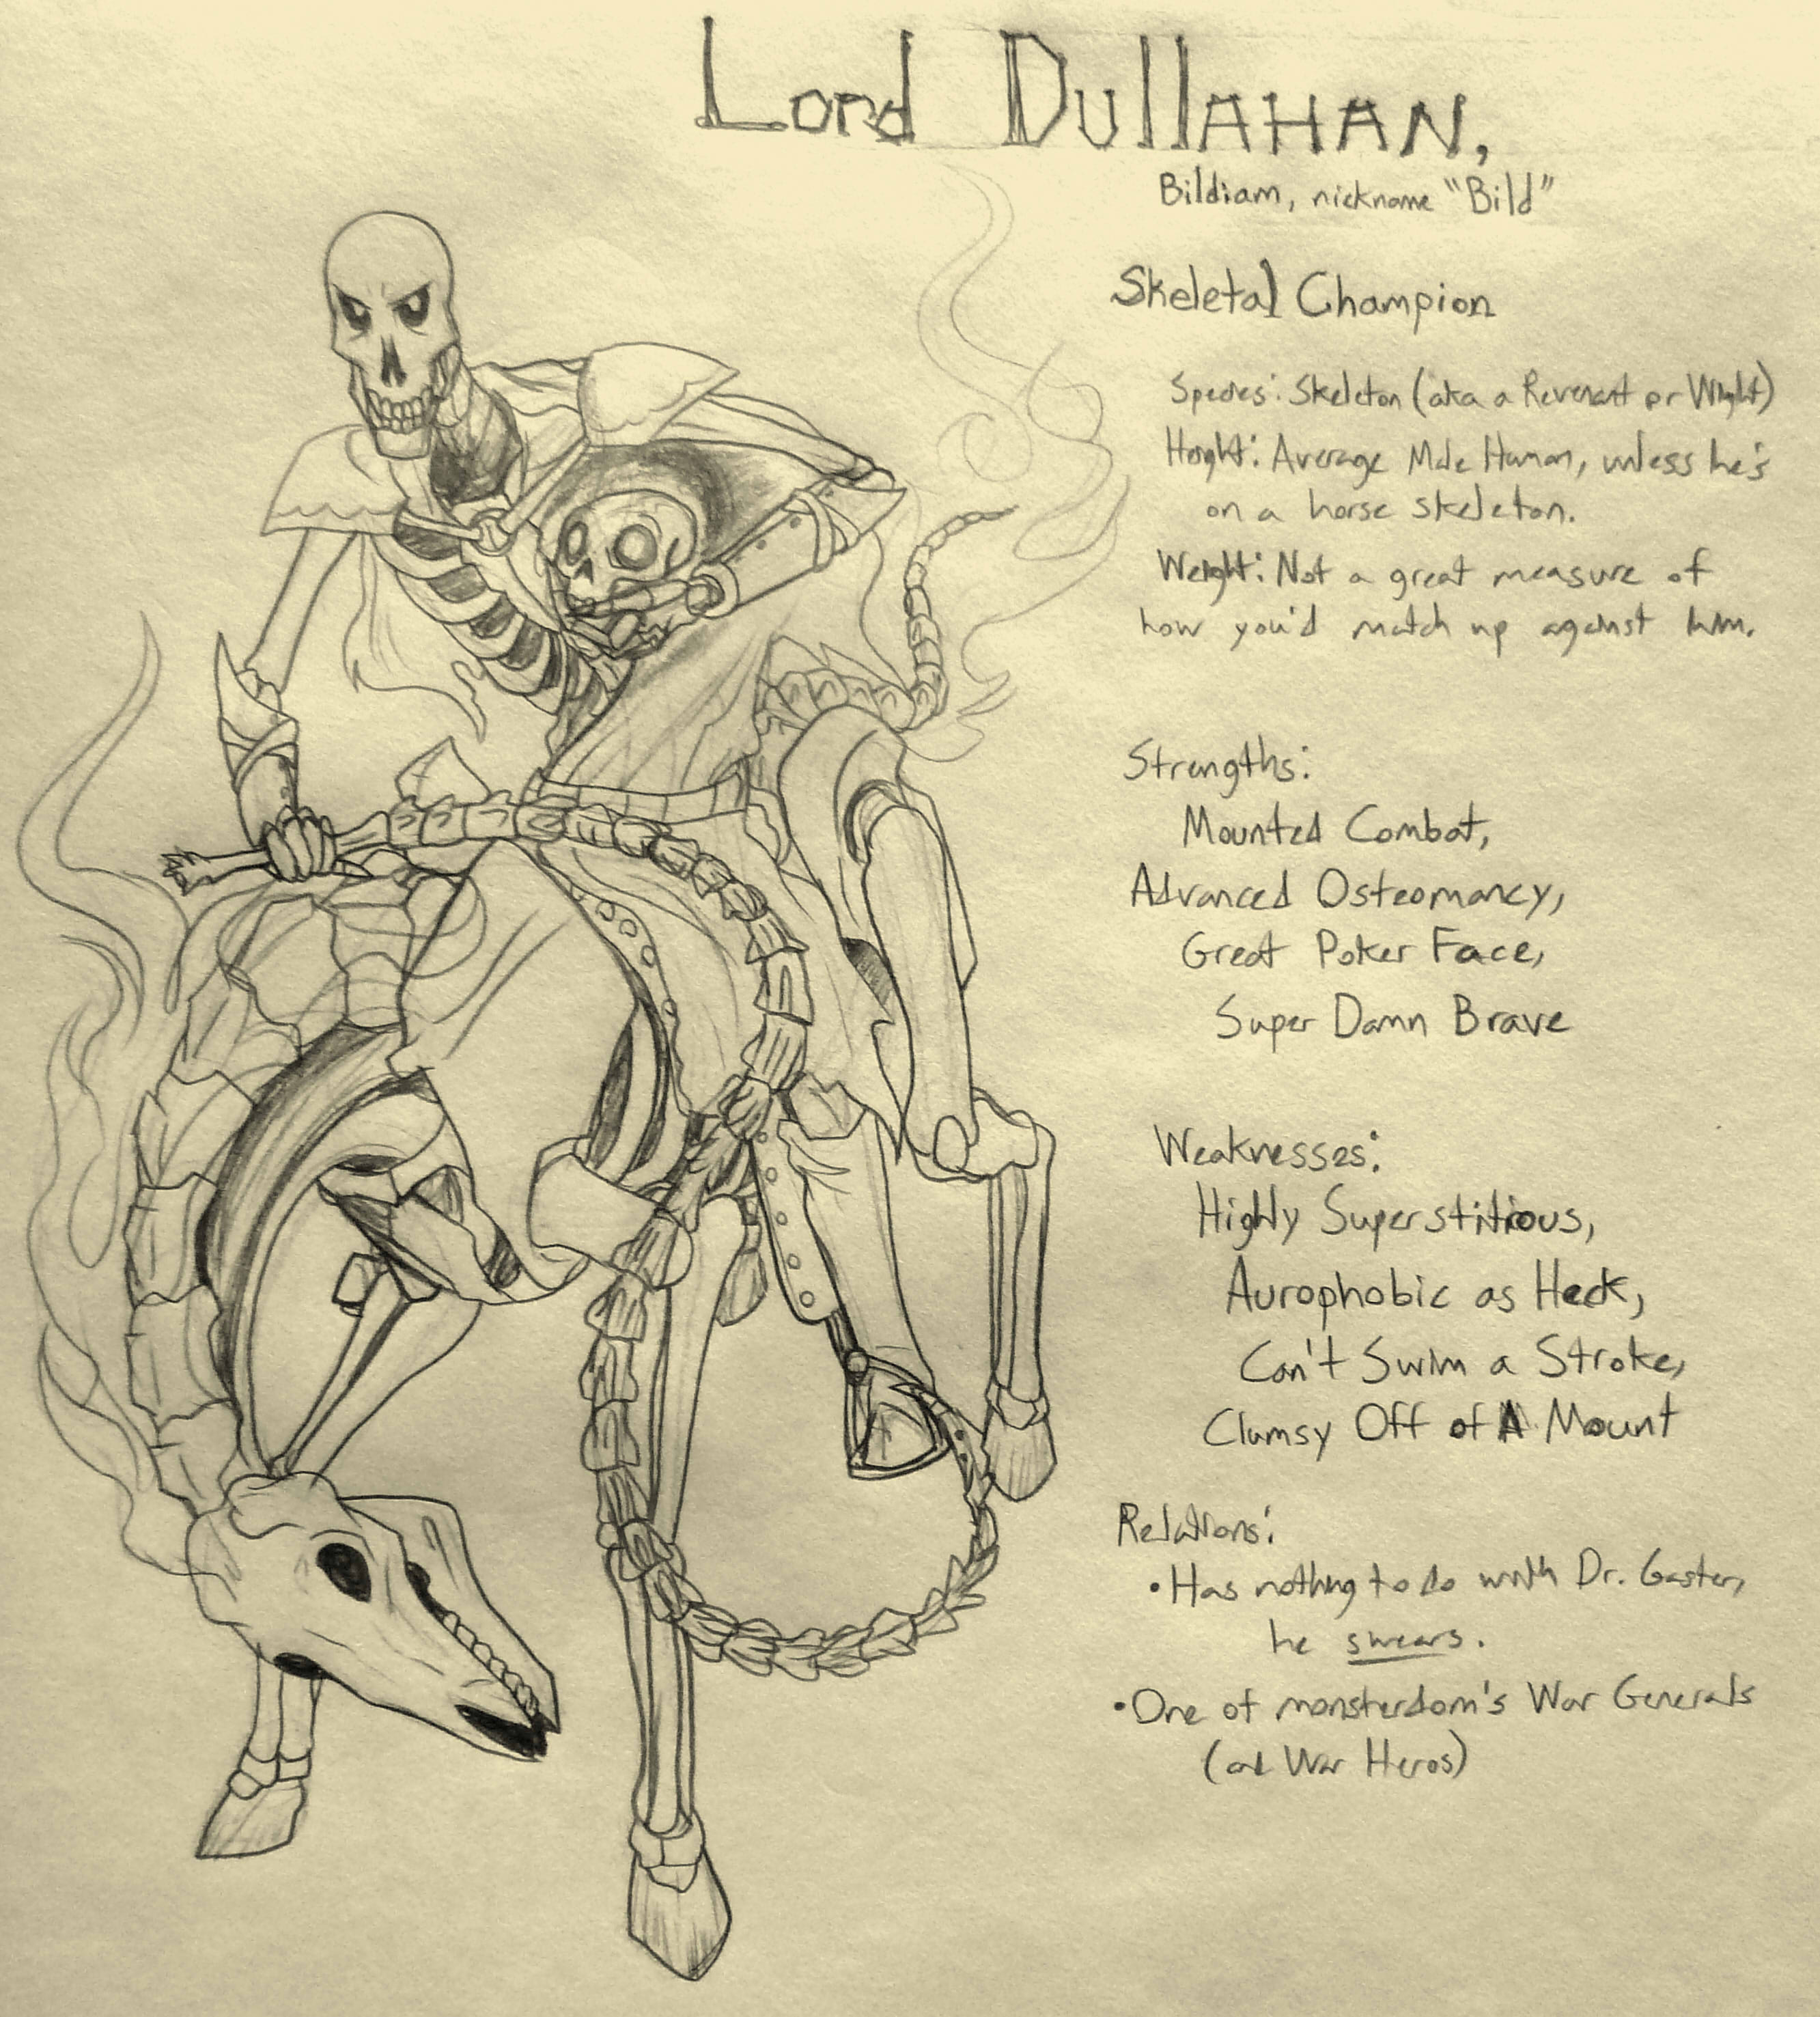 Lord Dullahan,
Bildiam, nickname "Bild"
Skeletal Champion
Species: Skeleton (aka a Revenant or Wight)
Height: Average Male Human, unless he's
on a horse skeleton.
Weight: Not a great measure of
how you'd match up against him.
Strengths:
Mounted Combat,
Advanced Osteomancy,
Great Poker Face,
Super Damn Brave
Weaknesses:
Highly Superstitious,
Aurophobic as Heck,
Can't Swim a Stroke,
Clumsy Off of A Mount
Relations:
• Has nothing to do with Dr. Gaster,
he swears.
• One of monsterdom's War Generals
(and War Heros)